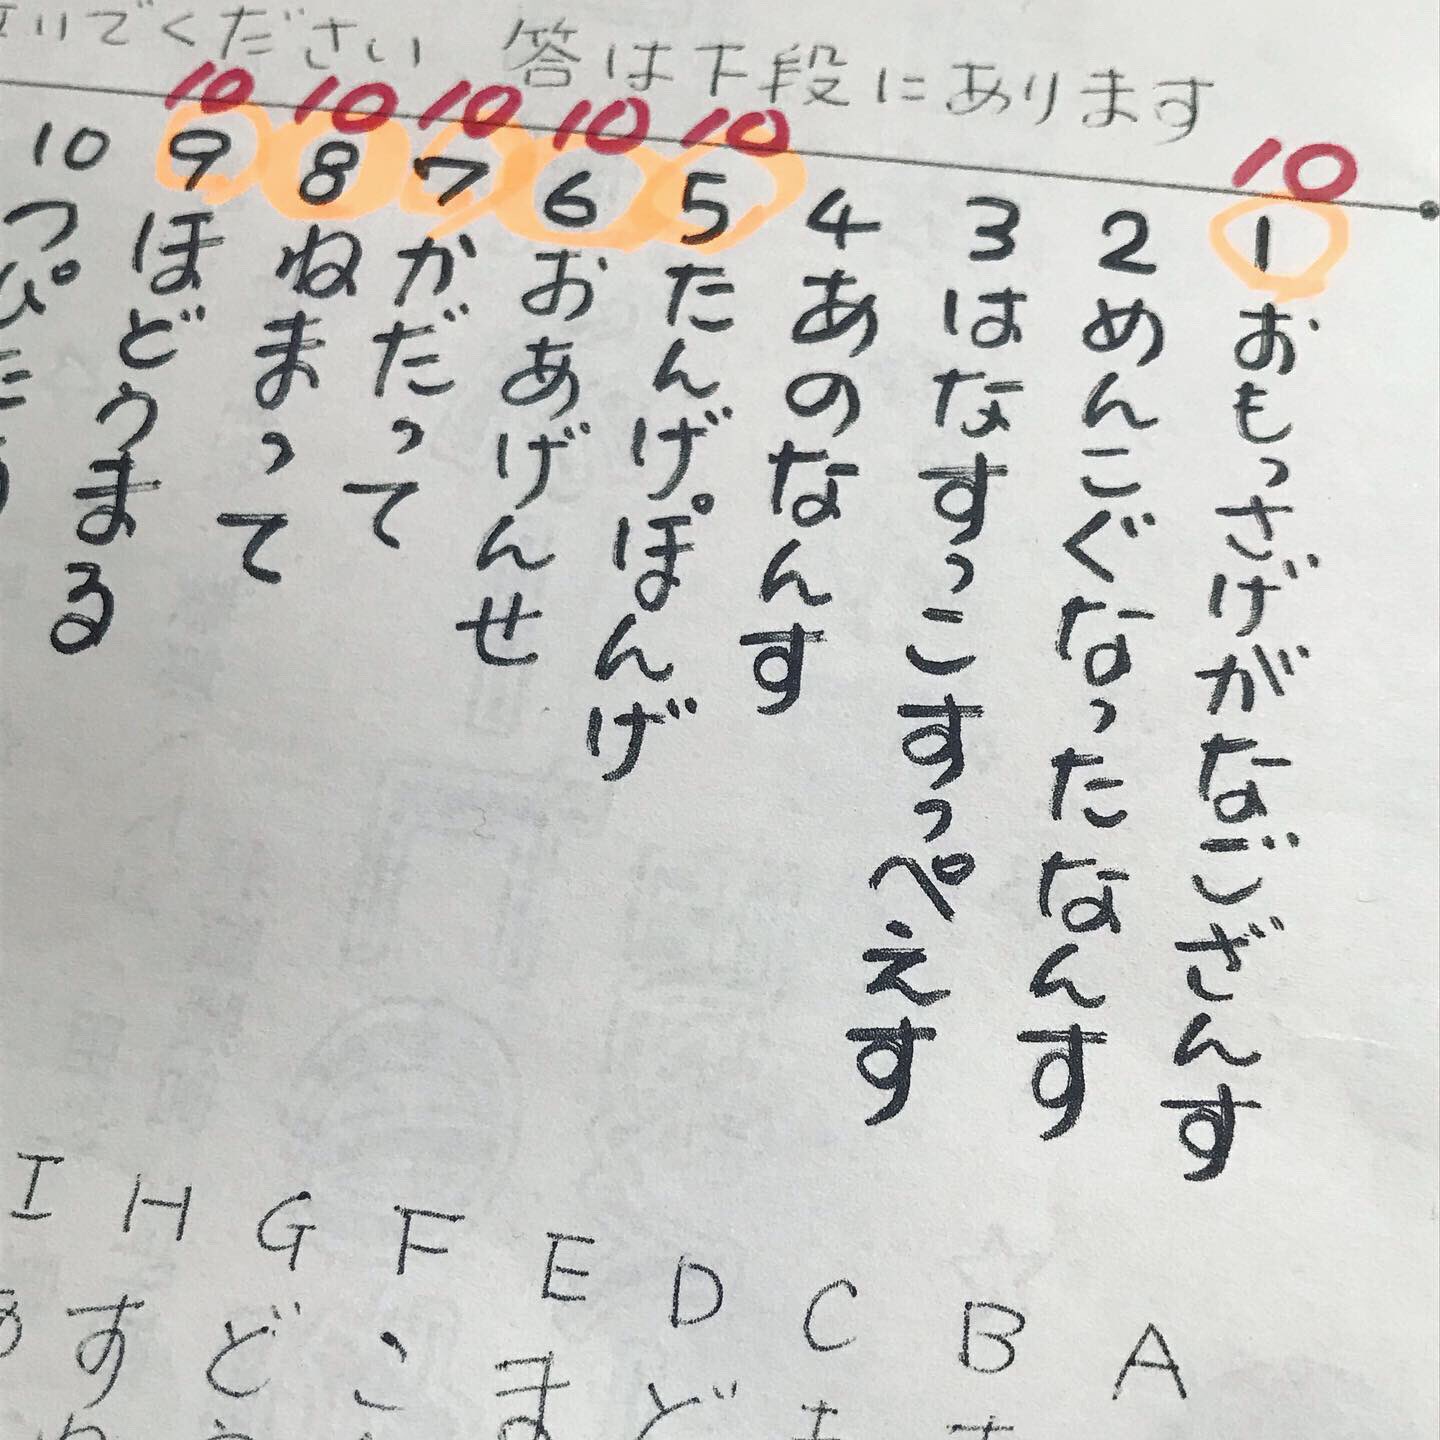 でください 答は下段にあります
10
1 おもっさげがなござんす
2 めんこぐなったなんす
3 はなすっこすっぺえす
4 あのなんす
10
5 たんげ。ぽんげ
10
6 おあげんせ
10
7 かだって
10
8 ねまって
10
9 ほどぅまる
10 つぴ
A
B
C
D ど
E ま
F こ
G ど
H す
I